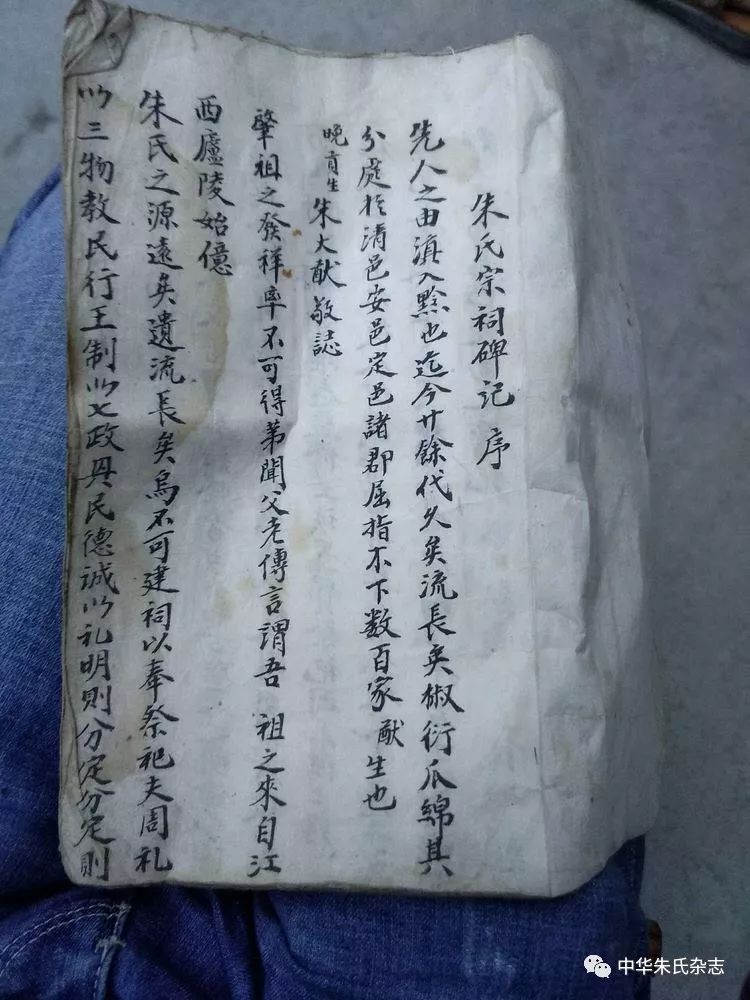 朱氏宗祠碑记序
先人之由滇入黔也迄今廿餘代久矣流長矣椒衍瓜綿其
分處於清邑安邑定邑諸郡屈指不下数百家猷生也
晚育生朱大猷敬誌
肇祖之發祥率不可得苐聞父老傳言謂吾 祖之來自江
西廬陵始億
朱氏之源遠矣遺流長矣烏不可建祠以奉祭祀夫周礼
以三物教民行王制以七政興民德誠以礼明則分定分定則
中华朱氏杂志